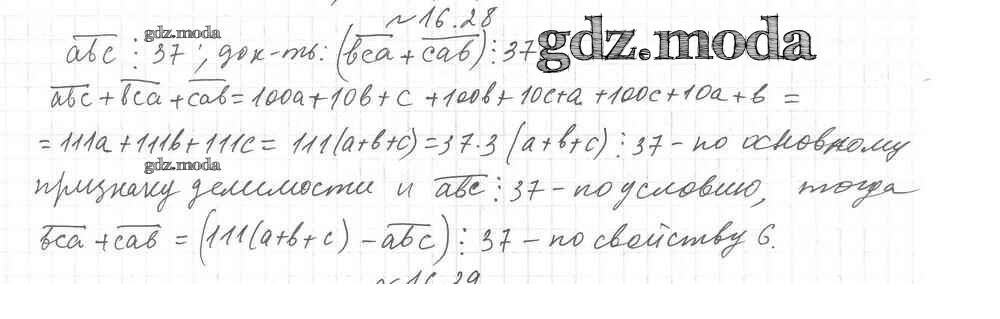 ~16.28
gdz.moda
gdz.moda
abc ⋮ 37; док-ть: (bca + cab) ⋮ 37
abc + bca + cab = 100a + 10b + c + 100b + 10c + a + 100c + 10a + b =
= 111a + 111b + 111c = 111(a+b+c) = 37·3 (a+b+c) ⋮ 37 - по основному
gdz.moda
признаку делимости и abc ⋮ 37 - по условию, тогда
bca + cab = (111(a+b+c) - abc) ⋮ 37 - по свойству 6.
~16.29